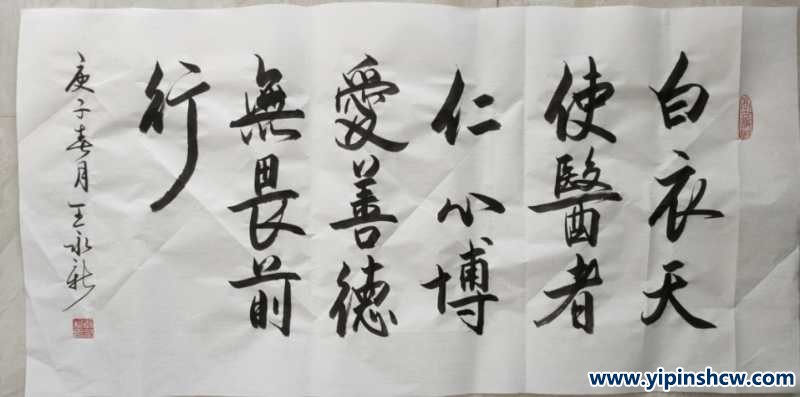 白衣天
使醫者
仁心博
愛善德
無畏前
行
庚子春月王永新
www.yipinshcw.com